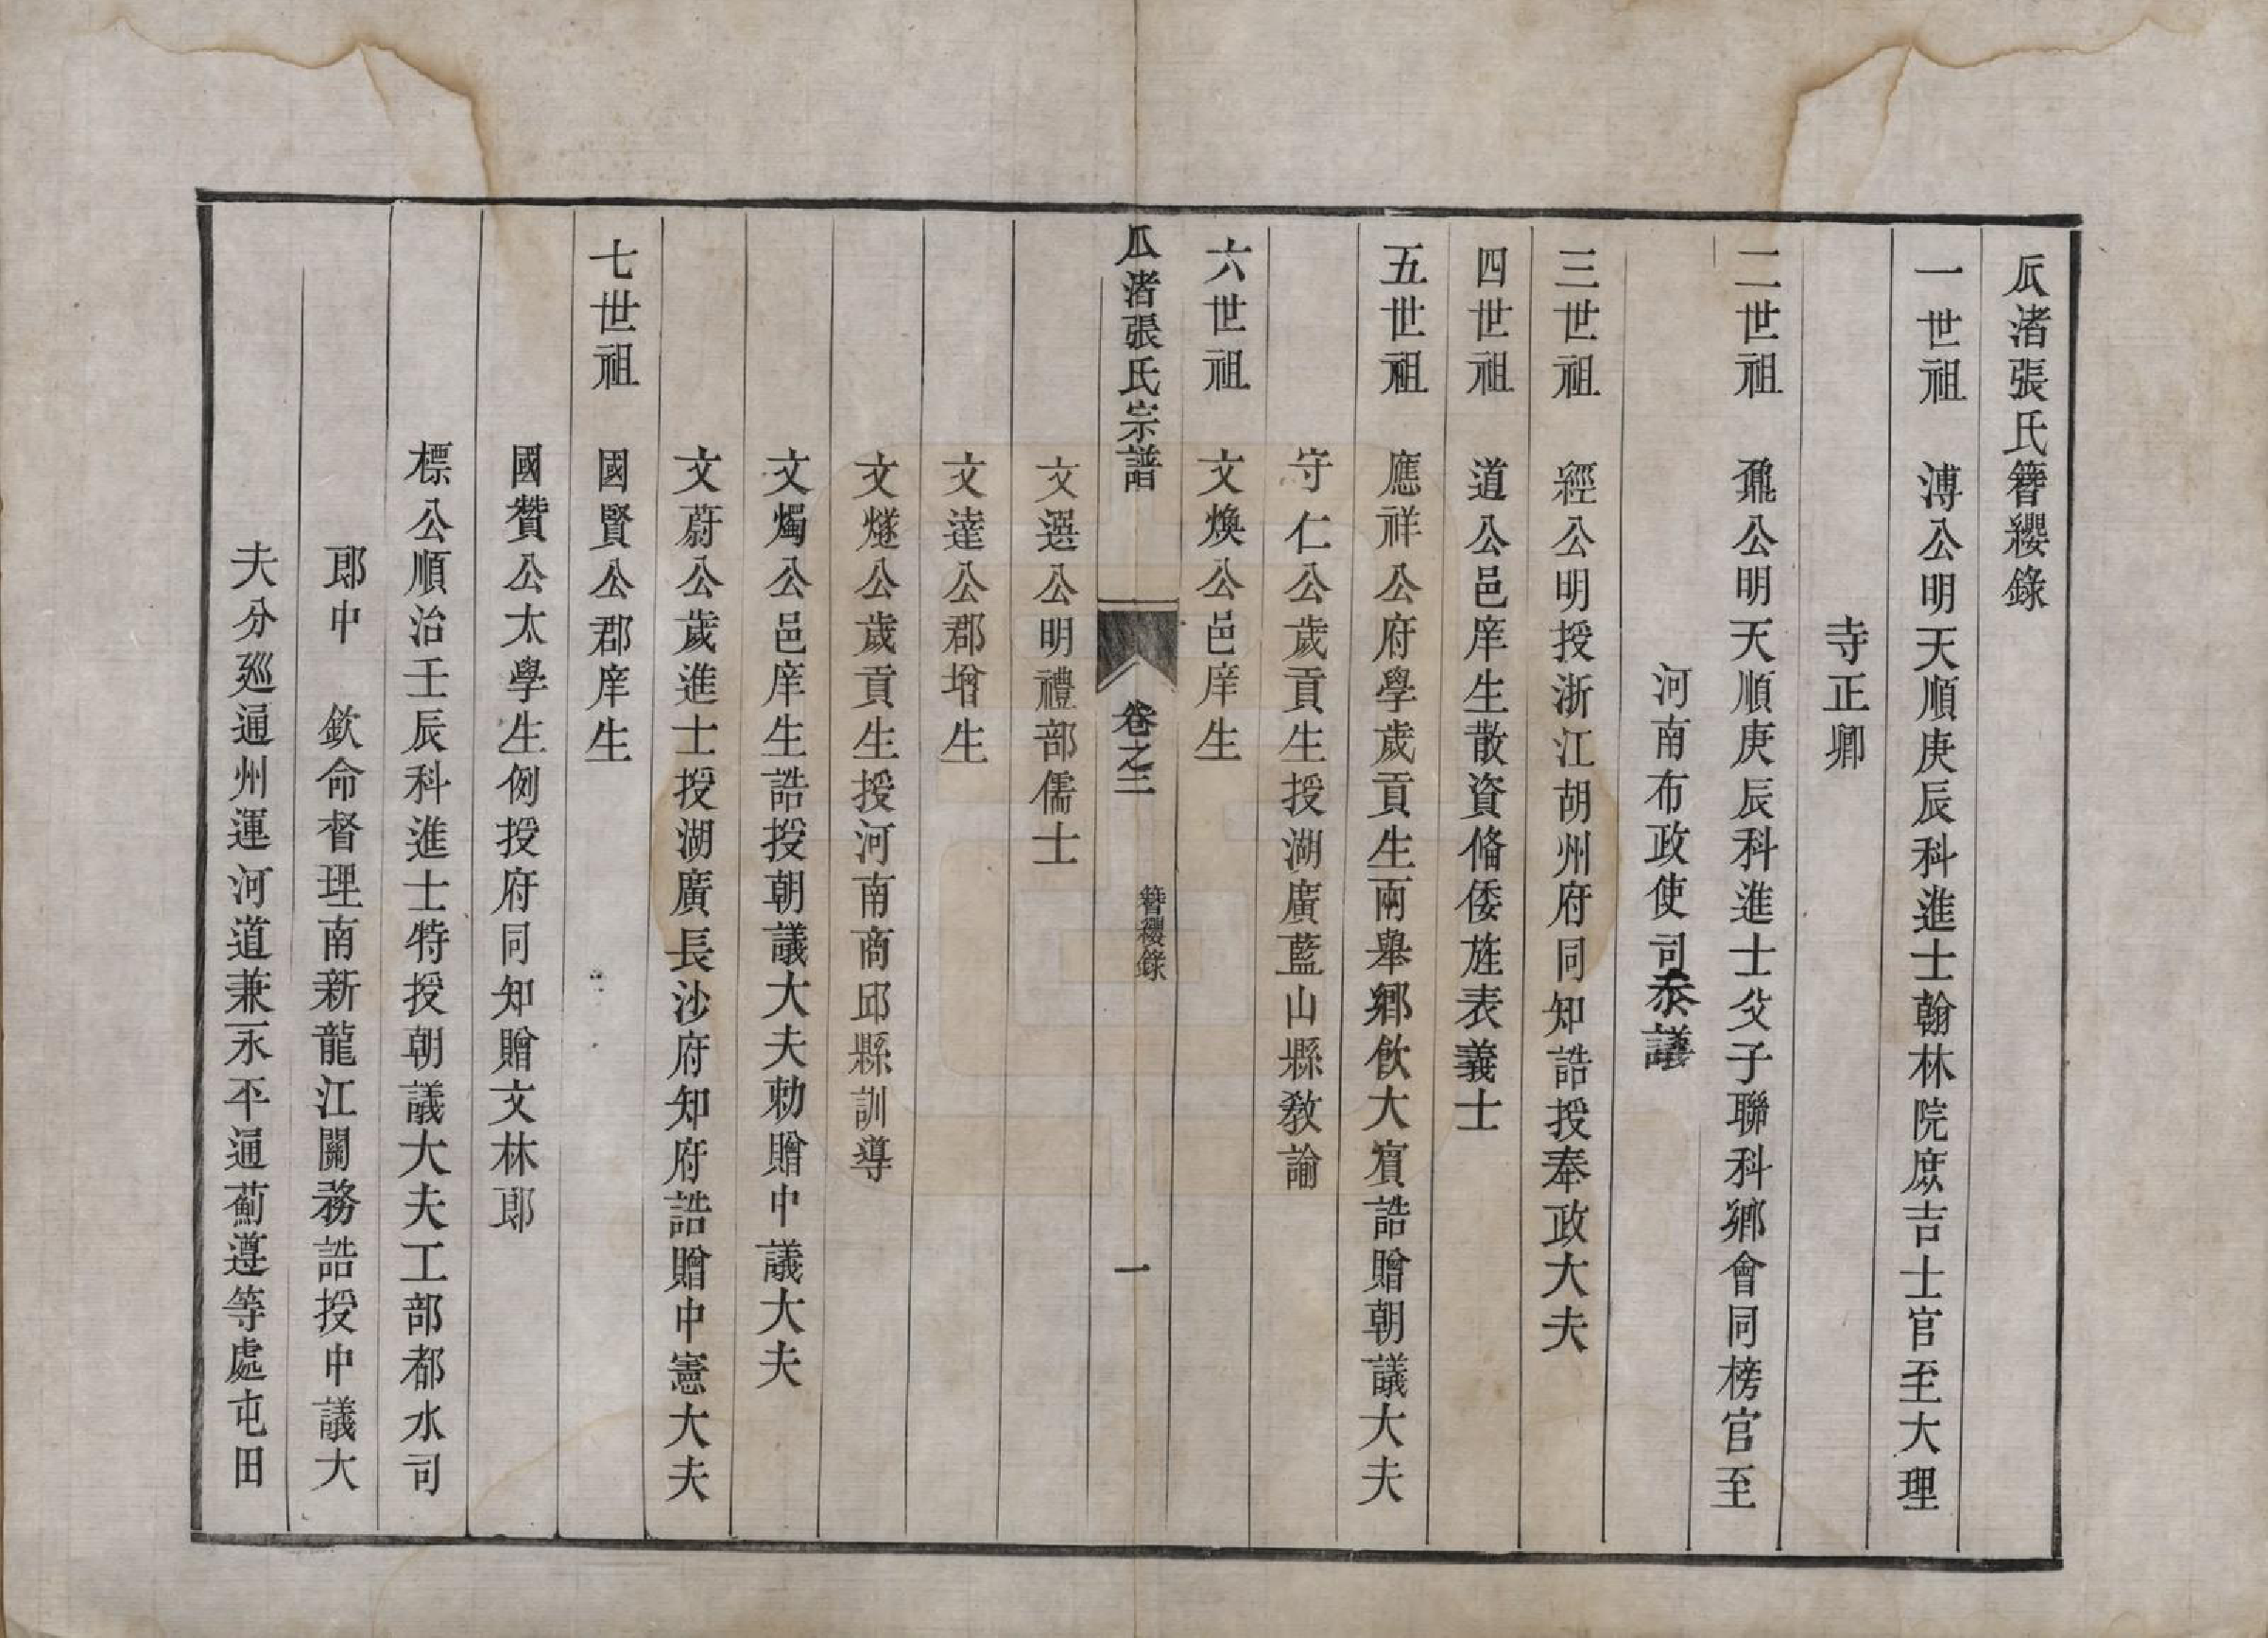 瓜渚張氏簪纓錄
一世祖　溥公明天順庚辰科進士翰林院庶吉士官至大理
寺正卿
二世祖　鼐公明天順庚辰科進士父子聯科鄉會同榜官至
河南布政使司叅議
三世祖　經公明授浙江胡州府同知誥授奉政大夫
四世祖　道公邑庠生散資偹倭旌表義士
五世祖　應祥公府學歲貢生兩舉鄉飲大賓誥贈朝議大夫
守仁公歲貢生授湖廣藍山縣教諭
六世祖　文煥公邑庠生
瓜渚張氏宗譜　卷之二　簪纓錄　一
文選公明禮部儒士
文達公郡增生
文燧公歲貢生授河南商邱縣訓導
文燭公邑庠生誥授朝議大夫勅贈中議大夫
文蔚公歲進士授湖廣長沙府知府誥贈中憲大夫
七世祖　國賢公郡庠生
國贊公太學生例授府同知贈文林郎
標公順治壬辰科進士特授朝議大夫工部都水司
郎中　欽命督理南新龍江關務誥授中議大
夫分廵通州運河道兼永平通薊遵等處屯田